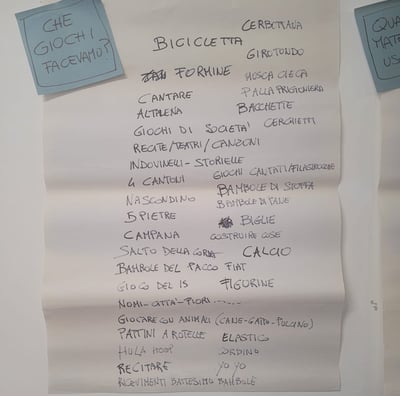 CHE
GIOCHI
FACEVAMO?
CERBOTTANA
BICICLETTA
GIROTONDO
FORMINE
MOSCA CIECA
PALLA PRIGIONIERA
CANTARE
BACCHETTE
ALTALENA
CERCHIETTI
GIOCHI DI SOCIETA'
RECITE/TEATRI/CANZONI
INDOVINELLI - STORIELLE
GIOCHI CANTATI/FILASTROCCHE
4 CANTONI
BAMBOLE DI STOFFA
NASCONDINO
BAMBOLE DI PANE
5 PIETRE
BIGLIE
CAMPANA
COSTRUIRE COSE
SALTO DELLA CORDA
CALCIO
BAMBOLE DEL PACCO FIAT
GIOCO DEL 15
FIGURINE
NOMI-CITTA'-FIORI-.....
GIOCARE CON ANIMALI (CANE-GATTO-PULCINO)
PATTINI A ROTELLE
ELASTICO
HULA HOOP
CORDINO
RECITARE
YO YO
RICEVIMENTI BATTESIMO BAMBOLE
QUA
MATE
US